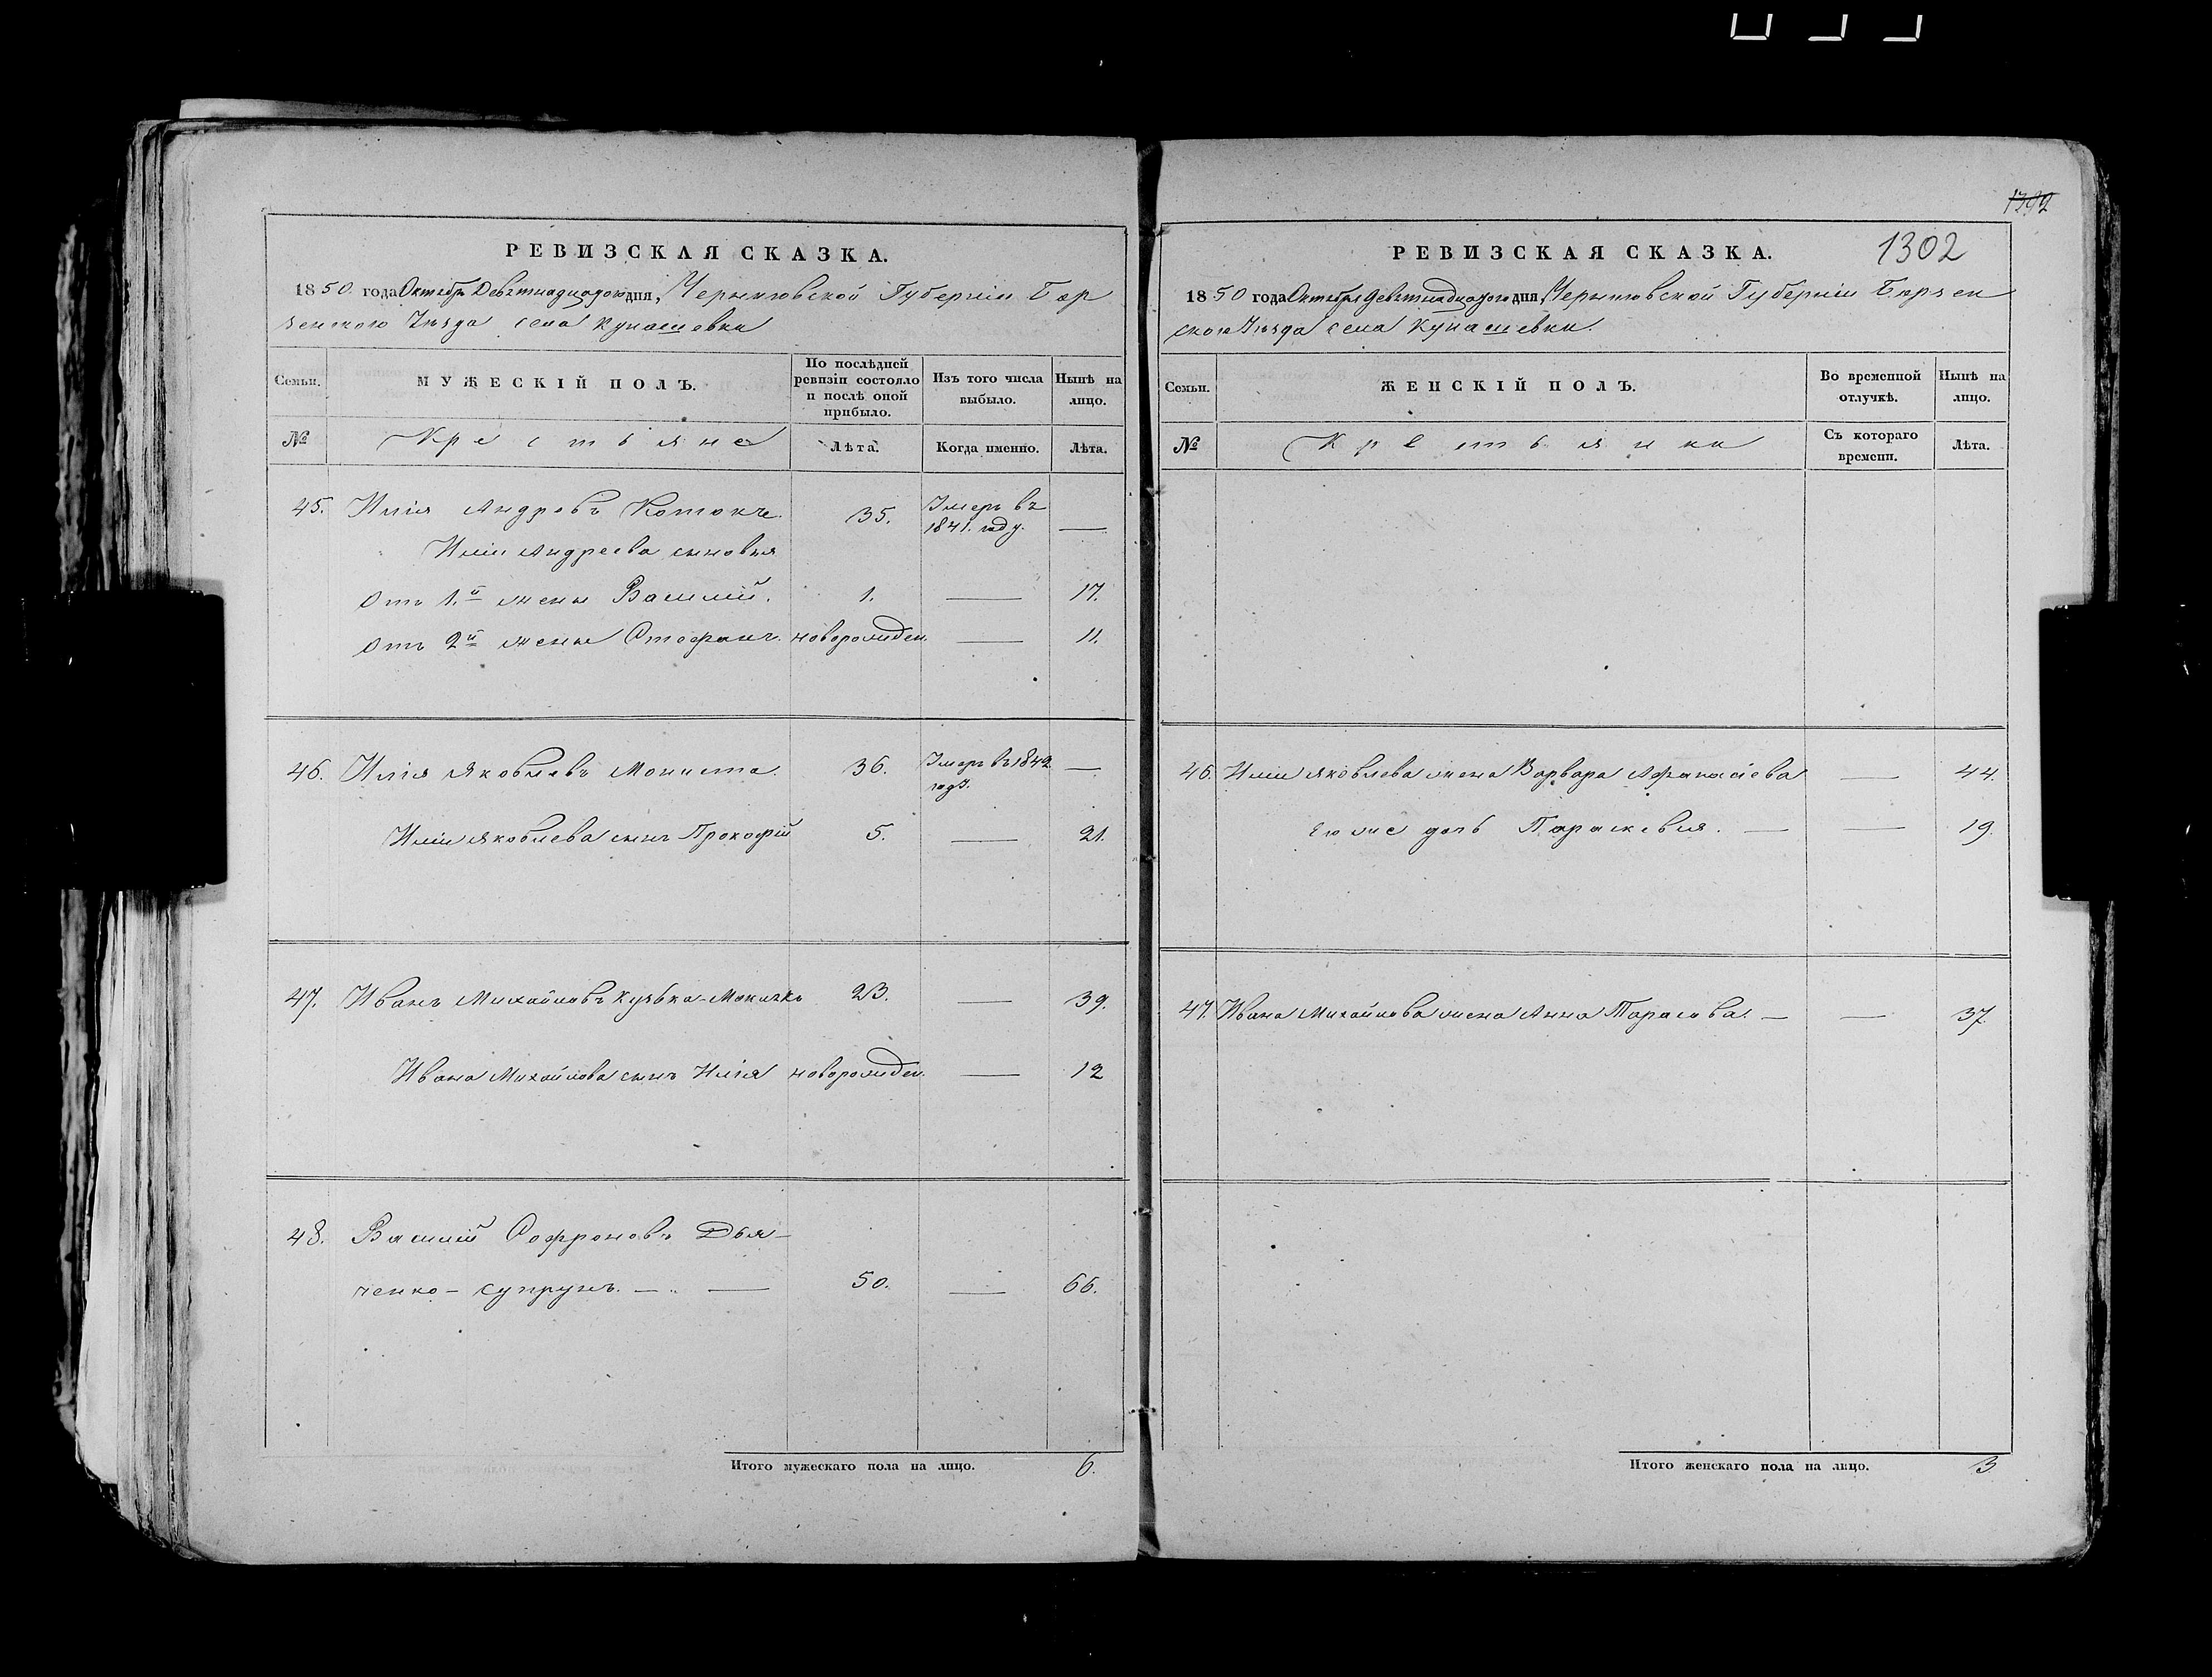 РЕВИЗСКАЯ СКАЗКА.
1850 года Октября Девятнадцатого дня, Черниговской Губерніи Бор
зенского Уѣзда села Кунашевки
Семьи.
МУЖЕСКІЙ ПОЛЪ.
По послѣдней ревизіи состояло и послѣ оной прибыло.
Изъ того числа выбыло.
Нынѣ на лицо.
№
Крестьяне
Лѣта.
Когда именно.
Лѣта.
45. Илія Андреевъ 35. Умеръ въ 1841. году. —
Иліи Андреева сыновья
Отъ 1.й жены Василій. 1. — 17.
Отъ 2й жены Стефанъ. новорожден. — 11.
46. Илія Яковлевъ Мониста. 36. Умеръ въ 1842 году. —
Иліи Яковлева сынъ Прокофій 5. — 21.
47. Иванъ Михайловъ 23. — 39.
Ивана Михайлова сынъ Илія новорожден. — 12
48. Василій Софроновъ Дья-
ченко-Супрунъ. — 50. — 66.
Итого мужескаго пола на лицо. 6.
1292
РЕВИЗСКАЯ СКАЗКА.
1302
1850 года Октября Девятнадцатого дня, Черниговской Губерніи Борзен
ского Уѣзда села Кунашевки.
Семьи.
ЖЕНСКІЙ ПОЛЪ.
Во временной отлучкѣ.
Нынѣ на лицо.
№
Крестьянки
Съ котораго времени.
Лѣта.
46. Иліи Яковлева жена Варвара Афанасіева — 44.
Его же дочь Параскевія. — — 19.
47. Ивана Михайлова жена Анна Тарасова. — — 37.
Итого женскаго пола на лицо. 3